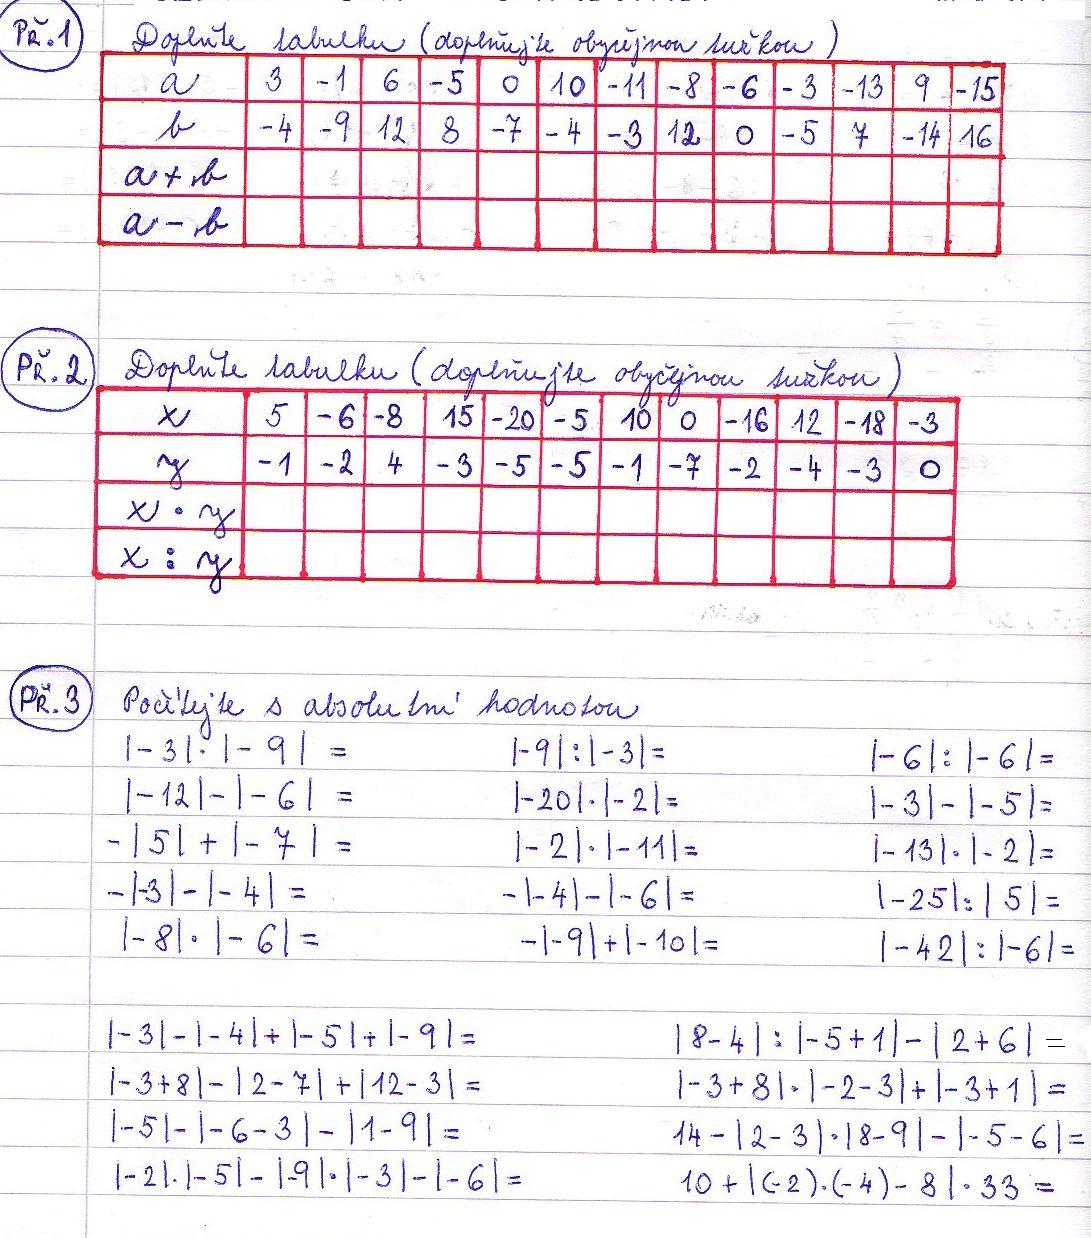 Př.1 Doplňte tabulku (doplňujte obyčejnou tužkou)
a 3 -1 6 -5 0 10 -11 -8 -6 -3 -13 9 -15
b -4 -9 12 8 -7 -4 -3 12 0 -5 7 -14 16
a+b
a-b
Př.2 Doplňte tabulku (doplňujte obyčejnou tužkou)
x 5 -6 -8 15 -20 -5 10 0 -16 12 -18 -3
y -1 -2 4 -3 -5 -5 -1 -7 -2 -4 -3 0
x · y
x : y
Př.3 Počítejte s absolutní hodnotou
|-3|·|-9| = |-9|:|-3|= |-6|:|-6|=
|-12|-|-6| = |-20|·|-2|= |-3|-|-5|=
-|5|+|-7| = |-2|·|-11|= |-13|·|-2|=
-|-3|-|-4| = -|-4|-|-6|= |-25|:|5|=
|-8|·|-6| = -|-9|+|-10|= |-42|:|-6|=
|-3|-|-4|+|-5|+|-9|= |8-4|:|-5+1|-|2+6| =
|-3+8|-|2-7|+|12-3| = |-3+8|·|-2-3|+|-3+1| =
|-5|-|-6-3|-|1-9| = 14-|2-3|·|8-9|-|-5-6|=
|-2|·|-5|-|-9|·|-3|-|-6| = 10+|(-2)·(-4)-8|·33 =